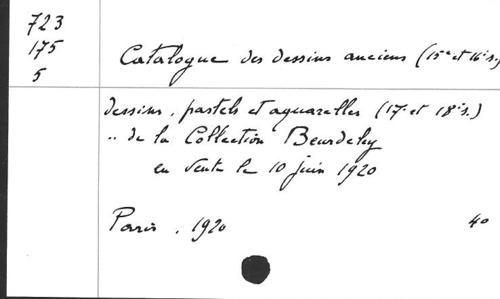 723
175
5
Catalogue des dessins anciens (15e et 16e s.)
dessins, pastels et aquarelles (17e et 18e s.)
.. de la Collection Beurdeley
en vente le 10 juin 1920
Paris, 1920
40